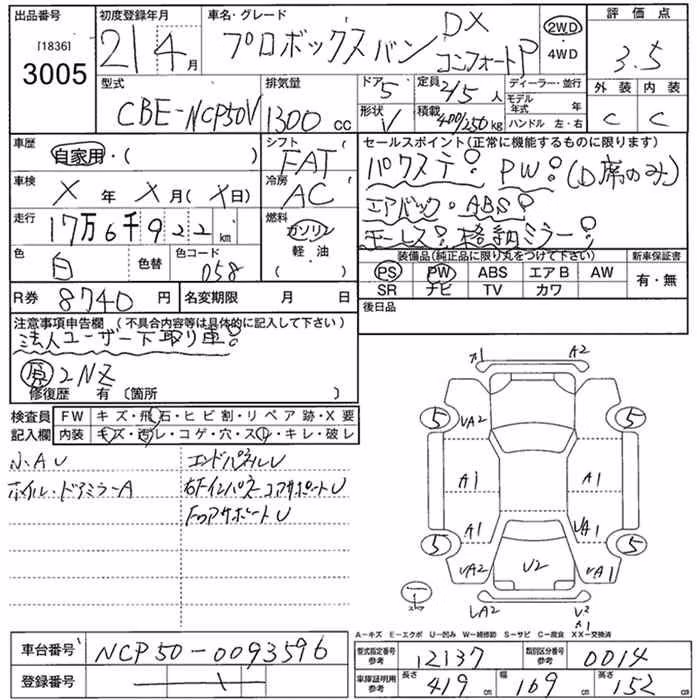 出品番号 初度登録年月 車名・グレード 評価点
[1836] 3005
21年 4月 プロボックスバン DX コンフォートP 2WD・4WD 3.5
型式 排気量 ドア 5 定員 2/5人 ディーラー・並行 外装 内装
CBE-NCP50V 1300cc 形状 V 積載 400/250kg モデル年式 年 C C
ハンドル 左・右
車歴 自家用・( ) シフト FAT セールスポイント(正常に機能するものに限ります)
車検 X年 X月(X日) 冷房 AC パワステ! PW!(D席のみ)
エアバック・ABS!
走行 17万6千922km 燃料 ガソリン キーレス!格納ミラー!
軽油 ( ) 装備品(純正品に限り丸をつけて下さい) 新車保証書
色 白 色替 色コード 058 PS PW ABS エアB AW 有・無
SR ナビ TV カワ
R券 8740円 名変期限 月 日 後日品
注意事項申告欄 (不具合内容等は具体的に記入して下さい)
法人ユーザー下取り車!
原 2NZ
修復歴 有 (箇所 )
検査員 FW キズ・飛石・ヒビ割・リペア跡・X要
記入欄 内装 キズ・汚レ・コゲ・穴・スレ・キレ・破レ
小AU エンドパネルU
ホイル・ドアミラーA 右Fインパネ コアサポートU
FロアサポートU
A1 A2
5 5
UA2
A1 A1
A1 UA1
5 5
UA2 U2 UA1
UA2 U2
A1
A-キズ E-エクボ U-凹み W-補修跡 S-サビ C-腐食 XX-交換済
車台番号 NCP50-0093596 型式指定番号 参考 12137 類別区分番号 参考 0014
登録番号 車庫証明用 参考 長さ 419cm 幅 169cm 高さ 152cm